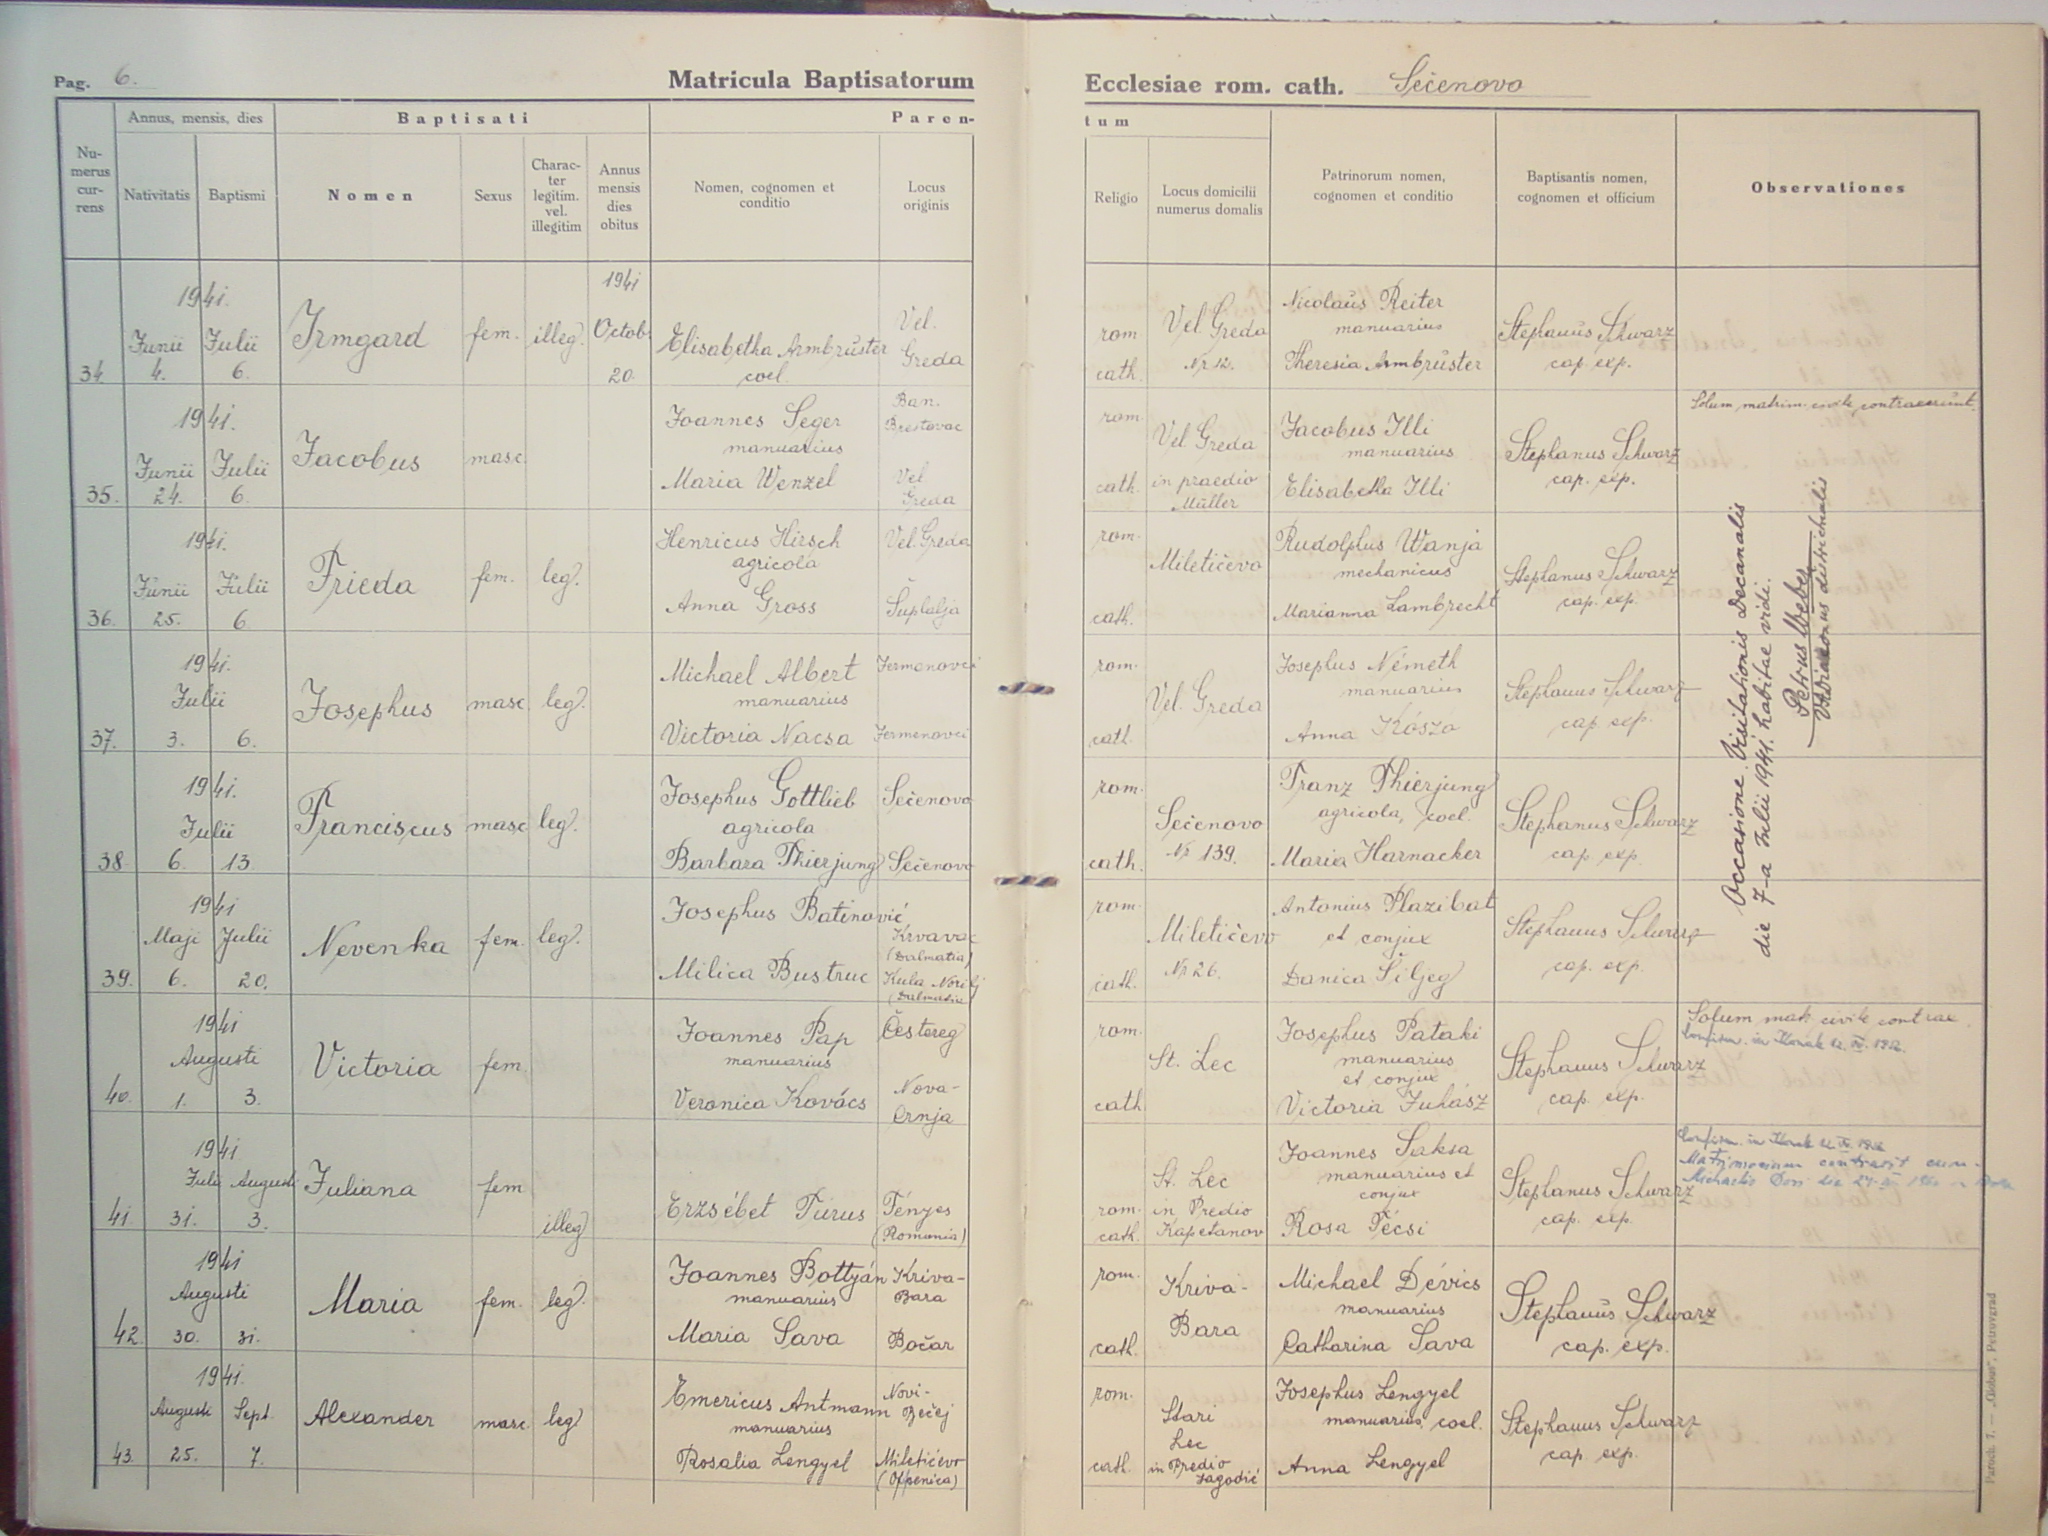 Pag. 6.
Matricula Baptisatorum
Ecclesiae rom. cath. Sečenovo
Numerus currens
Annus, mensis, dies
Nativitatis
Baptismi
Baptisati
Nomen
Sexus
Charac-
ter
legitim.
vel.
illegitim
Annus
mensis
dies
obitus
Paren-
tum
Nomen, cognomen et
conditio
Locus
originis
Religio
Locus domicilii
numerus domalis
Patrinorum nomen,
cognomen et conditio
Baptisantis nomen,
cognomen et officium
Observationes
34. 1941. Junii 4. Julii 6. Irmgard fem. illeg. 1941 Octob. 20.
Elisabetha Armbrűster coel. Vel. Greda
rom. cath. Vel. Greda Nr 12. Nicolaŭs Reiter manuarius
Theresia Armbrűster
Stephanŭs Schwarz cap. exp.
35. 1941. Junii 24. Julii 6. Jacobus masc.
Joannes Seger manuarius Ban. Brestovac
Maria Wenzel Vel Greda
rom. cath. Vel Greda in praedio Müller
Jacobus Illi manuarius
Elisabetha Illi
Stephanus Schwarz cap. exp.
Solum matrim. civile contraxerunt.
36. 1941. Junii 25. Julii 6. Frieda fem. leg.
Henricus Hirsch agricola Vel. Greda
Anna Gross Šuplalja
rom. cath. Miletičevo
Rudolphus Wanja mechanicus
Marianna Lambrecht
Stephanus Schwarz cap. exp.
37. 1941. Julii 3. 6. Josephus masc. leg.
Michael Albert manuarius Jermenovci
Victoria Nacsa Jermenovci
rom. cath. Vel. Greda
Josephus Németh manuarius
Anna Kósza
Stephanus Schwarz cap. exp.
38 1941. Julii 6. 13. Franciscus masc leg.
Josephus Gottlieb agricola Sečenovo
Barbara Thierjung Sečenovo
rom. cath. Sečenovo Nr 139.
Franz Thierjung agricola, coel.
Maria Harnacker
Stephanus Schwarz cap. exp.
39. 1941 Maji 6. Julii 20. Nevenka fem. leg.
Josephus Batinović Krvavac (Dalmatia)
Milica Bustruc Kula Norilj (Dalmatia)
rom. cath. Miletičevo Nr 26.
Antonius Plazibat et conjux
Danica Šiljeg
Stephanus Schwarz cap. exp.
Occasione Visitationis Decanalis
die 7-a Julii 1941. habitae vidi.
Petrus Weber
districtualis
40. 1941 Augusti 1. 3. Victoria fem.
Joannes Pap manuarius Čestereg
Veronica Kovács Nova-Crnja
rom. cath St. Lec
Josephus Pataki manuarius et conjux
Victoria Juhász
Stephanus Schwarz cap. exp.
Solum matr. civile contrax.
Confirm. in Konak
41. 1941 Julii 31. Augusti 3. Juliana fem illeg.
Erzsébet Turus Fényes (Romania)
rom. cath. St. Lec in Predio Kapetanov
Joannes Saksa manuarius et conjux
Rosa Pécsi
Stephanus Schwarz cap. exp.
Confirm. in Konak
Matrimonium contraxit cum
42. 1941 Augusti 30. 31. Maria fem. leg.
Joannes Bottyán manuarius Kriva-Bara
Maria Sava Bočar
rom. cath. Kriva-Bara
Michael Dévics manuarius
Catharina Sava
Stephanŭs Schwarz cap. exp.
43. 1941. Augusti 25. Sept. 7. Alexander masc. leg
Emericus Antmann manuarius Novi-Bečej
Rosalia Lengyel Miletićevo (Offenica)
rom. cath. Stari Lec in Predio Jagodić
Josephus Lengyel manuarius, coel.
Anna Lengyel
Stephanus Schwarz cap. exp.
Paroch. 7. — „Globus", Petrovgrad